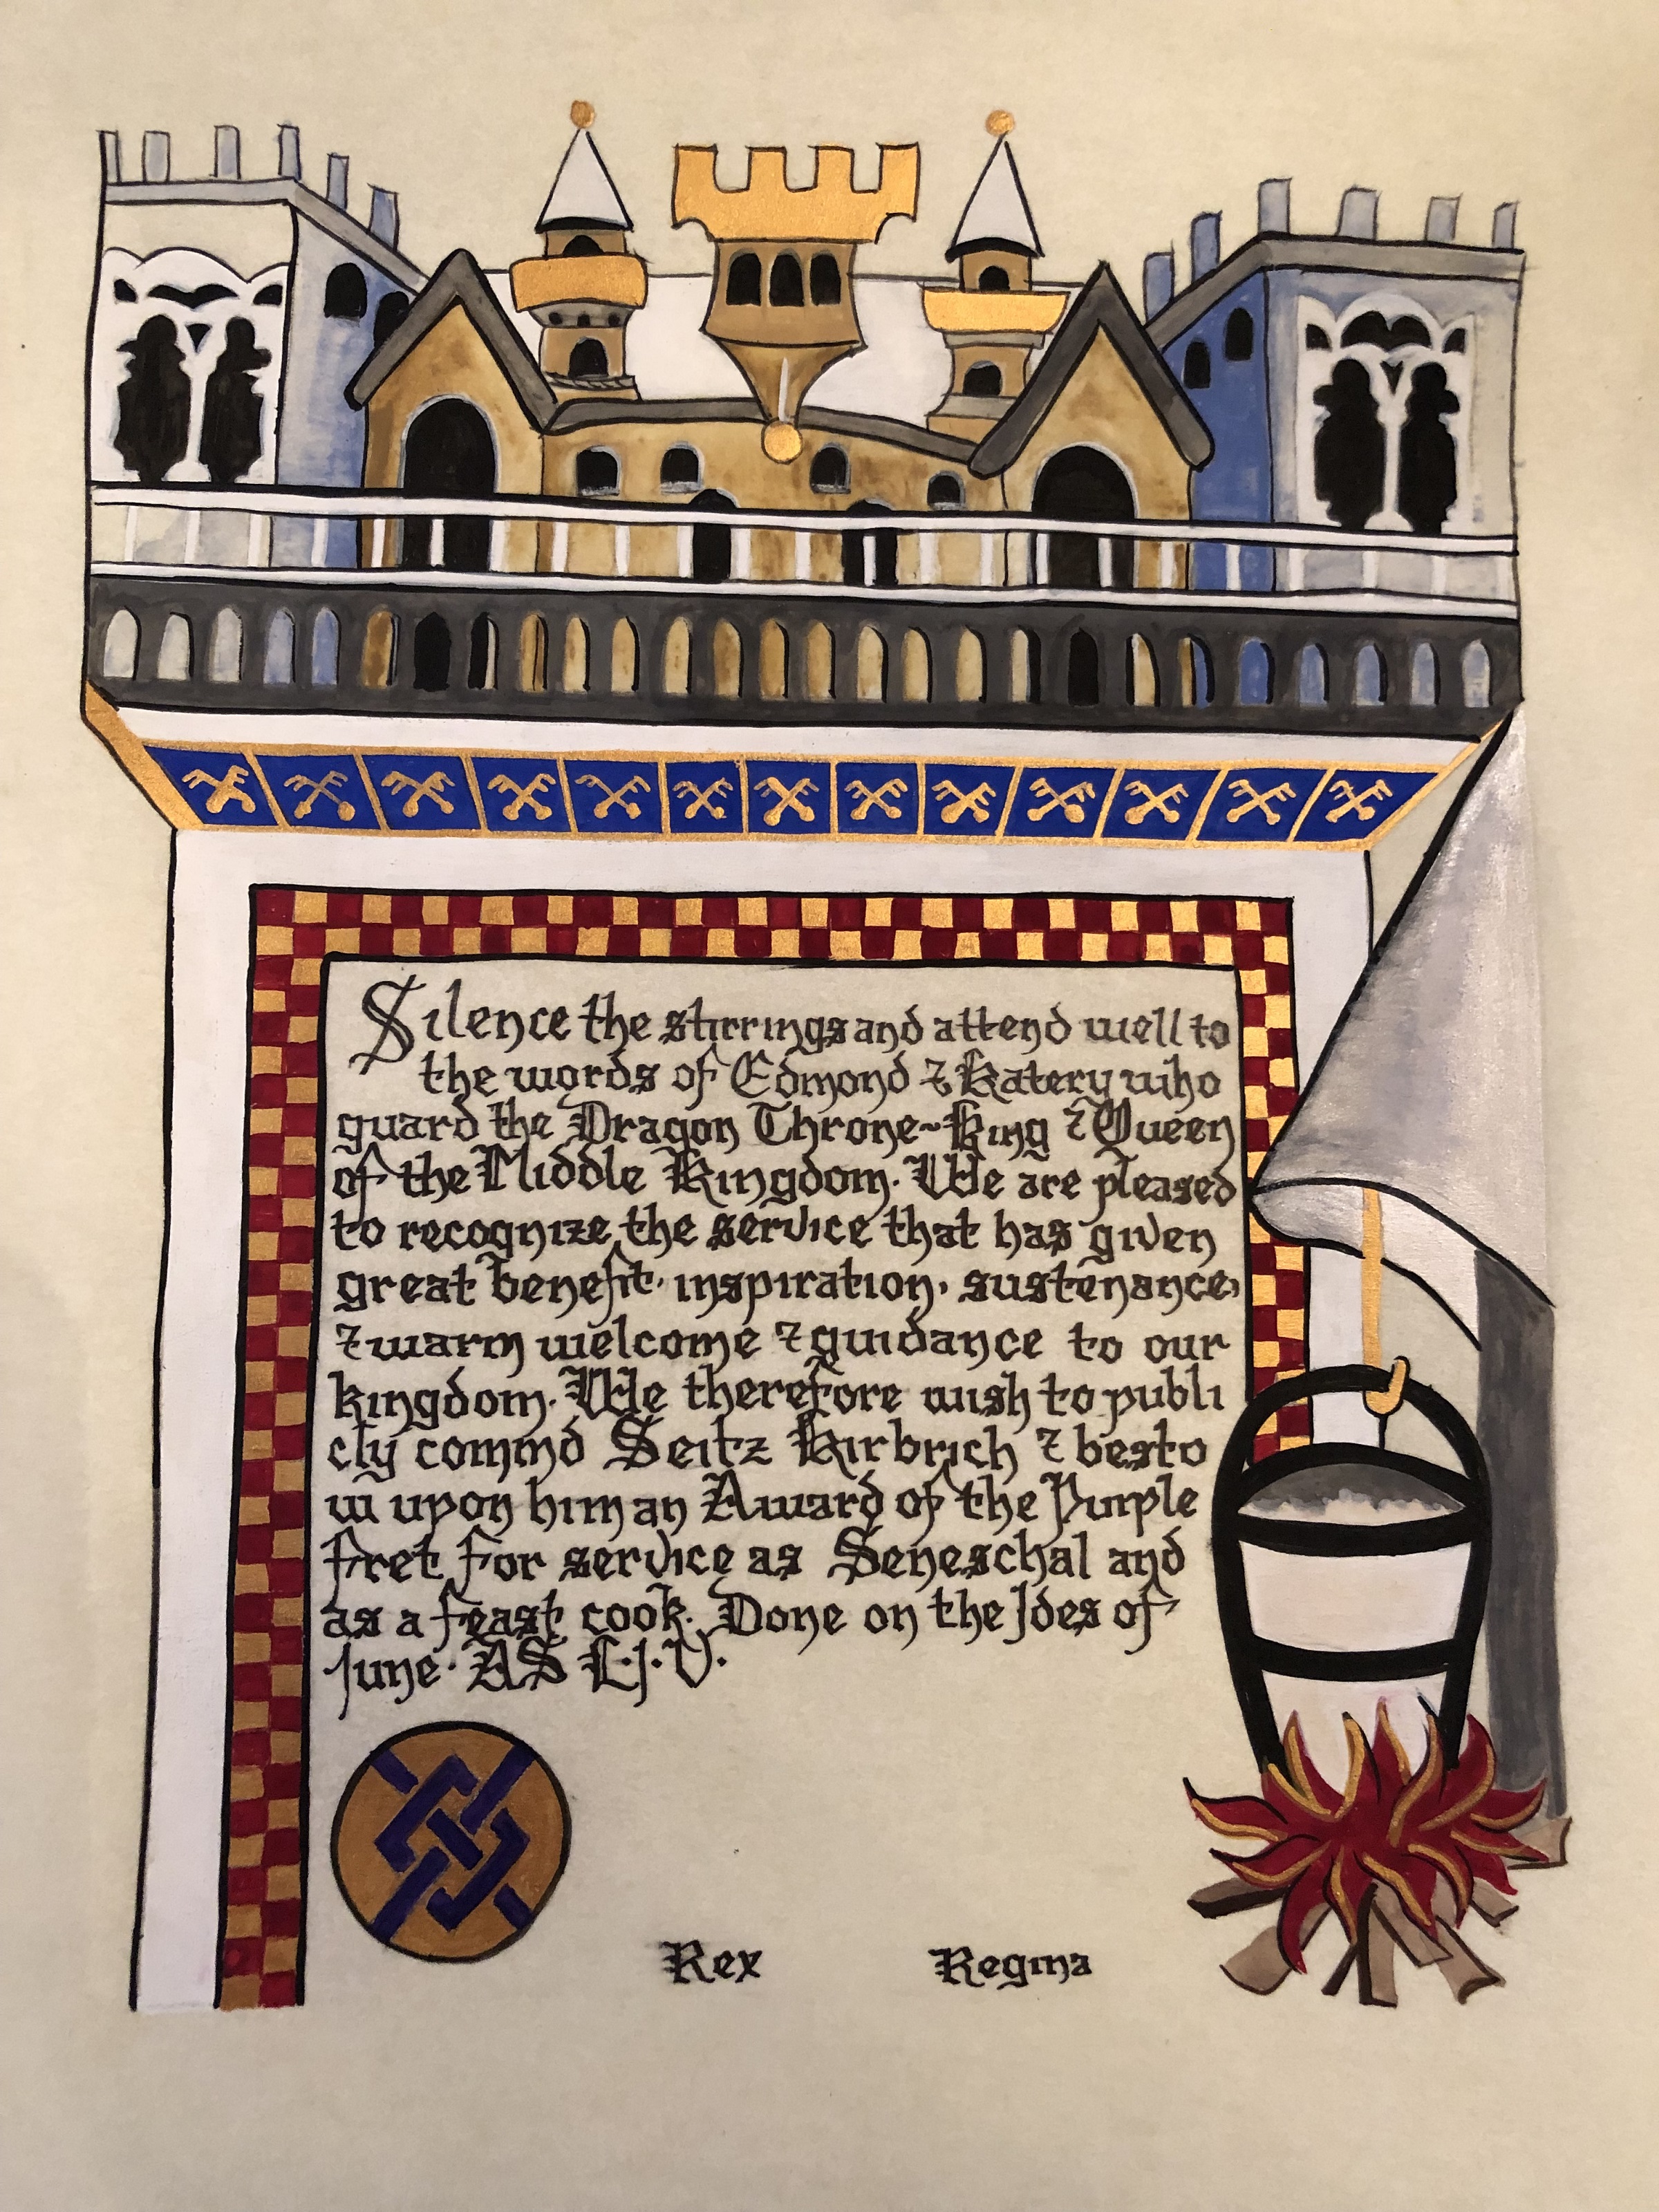 Silence the stirrings and attend well to
the words of Edmond & Katery who
guard the Dragon Throne~King & Queen
of the Middle Kingdom. We are pleased
to recognize the service that has given
great benefit, inspiration, sustenance,
& warm welcome & guidance to our
kingdom. We therefore wish to publi
cly commd Seitz Kirbrich & besto
w upon him an Award of the Purple
fret for service as Seneschal and
as a feast cook. Done on the Ides of
June. AS L.J.V.
Rex Regina